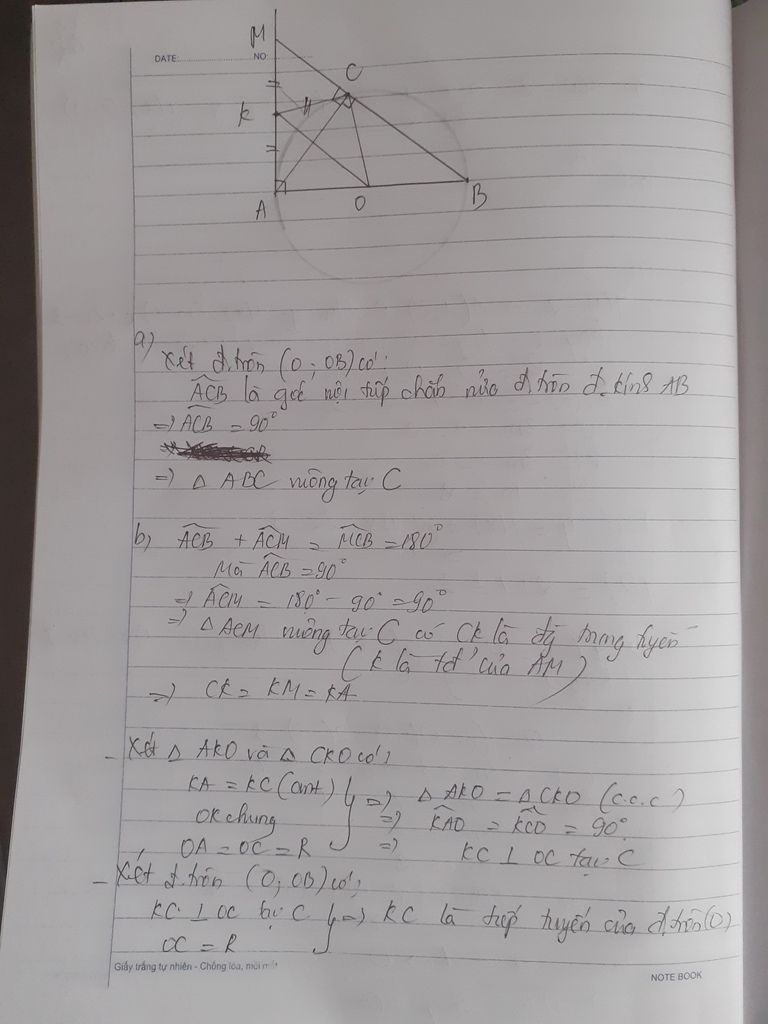 DATE: NO:
M
C
K
A
O
B
a)
Xét đ.tròn (O; OB) có:
ACB là góc nội tiếp chắn nửa đ.tròn đ.kính AB
=> ACB = 90°
=> Δ ABC vuông tại C
b) ACB + ACM = MCB = 180°
Mà ACB = 90°
=> ACM = 180° - 90° = 90°
=> Δ ACM vuông tại C có CK là đg trung tuyến
(K là tđ của AM)
=> CK = KM = KA
- Xét Δ AKO và Δ CKO có:
KA = KC (cmt) } => Δ AKO = Δ CKO (c.c.c)
OK chung => KAO = KCO = 90°
OA = OC = R => KC ⊥ OC tại C
- Xét đ.tròn (O; OB) có:
KC ⊥ OC tại C } => KC là tiếp tuyến của đ.tròn (O)
OC = R
Giấy trắng tự nhiên - Chống lóa, mỏi mắt
NOTE BOOK